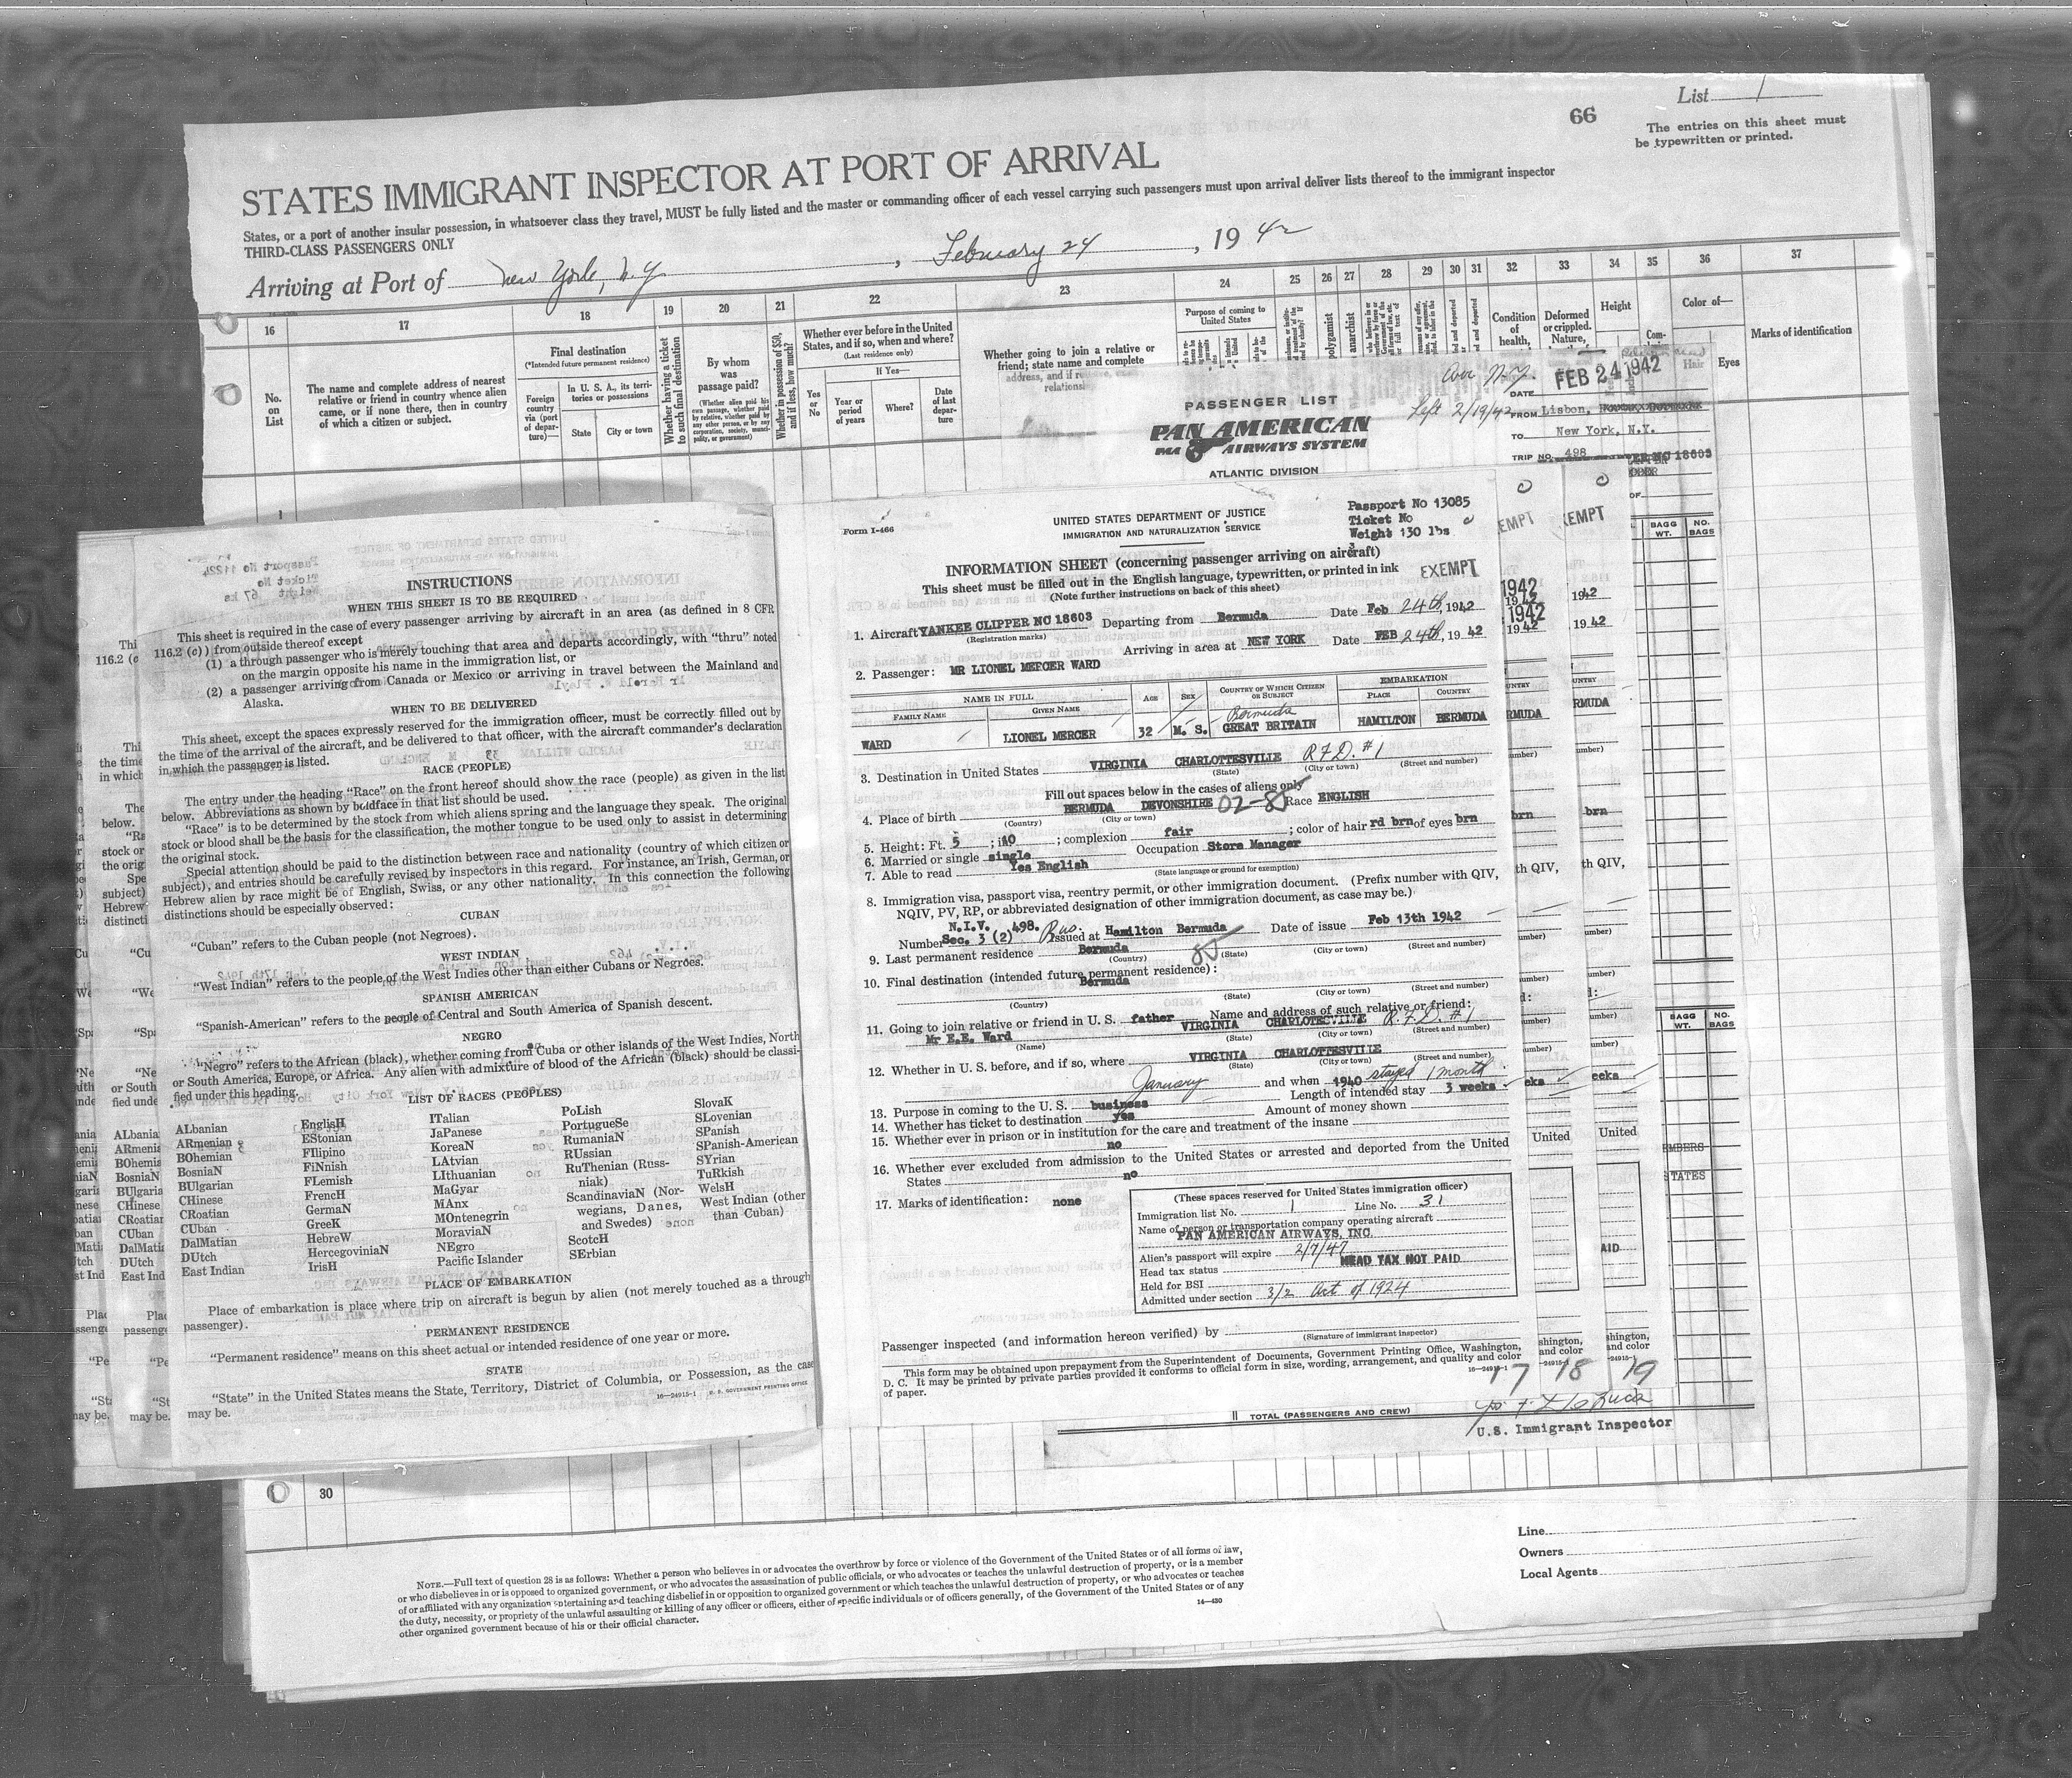 List 1
66
The entries on this sheet must
be typewritten or printed.
STATES IMMIGRANT INSPECTOR AT PORT OF ARRIVAL
States, or a port of another insular possession, in whatsoever class they travel, MUST be fully listed and the master or commanding officer of each vessel carrying such passengers must upon arrival deliver lists thereof to the immigrant inspector
THIRD-CLASS PASSENGERS ONLY
Arriving at Port of New York, N.Y. , February 24 , 19 42
16 17 18 19 20 21 22 23 24 25 26 27 28 29 30 31 32 33 34 35 36 37
No.
on
List
The name and complete address of nearest
relative or friend in country whence alien
came, or if none there, then in country
of which a citizen or subject.
Final destination
(*Intended future permanent residence)
Foreign
country
via (port
of depar-
ture)—
In U. S. A., its terri-
tories or possessions
State
City or town
Whether having a ticket
to such final destination
By whom
was
passage paid?
(Whether alien paid his
own passage, whether paid
by relative, whether paid by
any other person, or by any
corporation, society, munici-
pality, or government)
Whether in possession of $50,
and if less, how much?
Whether ever before in the United
States, and if so, when and where?
(Last residence only)
If Yes—
Yes
or
No
Year or
period
of years
Where?
Date
of last
depar-
ture
Whether going to join a relative or
friend; state name and complete
address, and if
relations
Purpose of coming to
United States
polygamist
anarchist
Condition
of
health,
Deformed
or crippled.
Nature,
Height
Com-
Color of—
Hair
Eyes
Marks of identification
PASSENGER LIST
PAN AMERICAN
PAA AIRWAYS SYSTEM
ATLANTIC DIVISION
N.Y.
DATE FEB 24 1942
Left 2/19/42
FROM Lisbon,
TO New York, N.Y.
TRIP NO. 498 NC 18603
BAGG
WT.
NO.
BAGS
1
INSTRUCTIONS
WHEN THIS SHEET IS TO BE REQUIRED
This sheet is required in the case of every passenger arriving by aircraft in an area (as defined in 8 CFR
116.2 (c)) from outside thereof except
(1) a through passenger who is merely touching that area and departs accordingly, with “thru” noted
on the margin opposite his name in the immigration list, or
(2) a passenger arriving from Canada or Mexico or arriving in travel between the Mainland and
Alaska.
WHEN TO BE DELIVERED
This sheet, except the spaces expressly reserved for the immigration officer, must be correctly filled out by
the time of the arrival of the aircraft, and be delivered to that officer, with the aircraft commander’s declaration
in which the passenger is listed.
RACE (PEOPLE)
The entry under the heading “Race” on the front hereof should show the race (people) as given in the list
below. Abbreviations as shown by boldface in that list should be used.
“Race” is to be determined by the stock from which aliens spring and the language they speak. The original
stock or blood shall be the basis for the classification, the mother tongue to be used only to assist in determining
the original stock.
Special attention should be paid to the distinction between race and nationality (country of which citizen or
subject), and entries should be carefully revised by inspectors in this regard. For instance, an Irish, German, or
Hebrew alien by race might be of English, Swiss, or any other nationality. In this connection the following
distinctions should be especially observed:
CUBAN
“Cuban” refers to the Cuban people (not Negroes).
WEST INDIAN
“West Indian” refers to the people of the West Indies other than either Cubans or Negroes.
SPANISH AMERICAN
“Spanish-American” refers to the people of Central and South America of Spanish descent.
NEGRO
“Negro” refers to the African (black), whether coming from Cuba or other islands of the West Indies, North
or South America, Europe, or Africa. Any alien with admixture of blood of the African (black) should be classi-
fied under this heading.
LIST OF RACES (PEOPLES)
ALbanian
ARmenian
BOhemian
BosniaN
BUlgarian
CHinese
CRoatian
CUban
DalMatian
DUtch
East Indian
EnglisH
EStonian
FIlipino
FiNnish
FLemish
FrencH
GermaN
GreeK
HebreW
HercegoviniaN
IrisH
ITalian
JaPanese
KoreaN
LAtvian
LIthuanian
MaGyar
MAnx
MOntenegrin
MoraviaN
NEgro
Pacific Islander
PoLish
PortugueSe
RumaniaN
RUssian
RuThenian (Russ-
niak)
ScandinaviaN (Nor-
wegians, Danes,
and Swedes)
ScotcH
SErbian
SlovaK
SLovenian
SPanish
SPanish-American
SYrian
TuRkish
WelsH
West Indian (other
than Cuban)
PLACE OF EMBARKATION
Place of embarkation is place where trip on aircraft is begun by alien (not merely touched as a through
passenger).
PERMANENT RESIDENCE
“Permanent residence” means on this sheet actual or intended residence of one year or more.
STATE
“State” in the United States means the State, Territory, District of Columbia, or Possession, as the case
may be.
16—24915-1 U. S. GOVERNMENT PRINTING OFFICE
Form I-466
UNITED STATES DEPARTMENT OF JUSTICE
IMMIGRATION AND NATURALIZATION SERVICE
Passport No 13085
Ticket No
Weight 130 lbs
INFORMATION SHEET (concerning passenger arriving on aircraft)
This sheet must be filled out in the English language, typewritten, or printed in ink
(Note further instructions on back of this sheet)
EXEMPT
1. Aircraft YANKEE CLIPPER NC 18603 Departing from Bermuda Date Feb 24th, 1942
(Registration marks)
Arriving in area at NEW YORK Date FEB 24th, 19 42
2. Passenger: MR LIONEL MERCER WARD
NAME IN FULL
FAMILY NAME
GIVEN NAME
AGE
SEX
COUNTRY OF WHICH CITIZEN
OR SUBJECT
EMBARKATION
PLACE
COUNTRY
Bermuda
WARD LIONEL MERCER 32 M. S. GREAT BRITAIN HAMILTON BERMUDA
3. Destination in United States VIRGINIA CHARLOTTESVILLE R.F.D. #1
(State) (City or town) (Street and number)
Fill out spaces below in the cases of aliens only
4. Place of birth BERMUDA DEVONSHIRE 02-85 Race ENGLISH
(Country) (City or town)
5. Height: Ft. 5 ; in 10 ; complexion fair ; color of hair rd brn of eyes brn
6. Married or single single Occupation Store Manager
7. Able to read Yes English
(State language or ground for exemption)
8. Immigration visa, passport visa, reentry permit, or other immigration document. (Prefix number with QIV,
NQIV, PV, RP, or abbreviated designation of other immigration document, as case may be.)
N.I.V. 498.
Number Sec. 3 (2) Bus. Issued at Hamilton Bermuda Date of issue Feb 13th 1942
9. Last permanent residence Bermuda 85
(Country) (State) (City or town) (Street and number)
10. Final destination (intended future permanent residence):
Bermuda
(Country) (State) (City or town) (Street and number)
11. Going to join relative or friend in U. S. father Name and address of such relative or friend:
Mr E.E. Ward VIRGINIA CHARLOTTESVILLE R.F.D. #1
(Name) (State) (City or town) (Street and number)
12. Whether in U. S. before, and if so, where VIRGINIA CHARLOTTESVILLE
(State) (City or town) (Street and number)
January and when 1940 stayed 1 month
13. Purpose in coming to the U. S. business Length of intended stay 3 weeks
14. Whether has ticket to destination yes Amount of money shown
15. Whether ever in prison or in institution for the care and treatment of the insane
no
16. Whether ever excluded from admission to the United States or arrested and deported from the United
States no
17. Marks of identification: none
(These spaces reserved for United States immigration officer)
Immigration list No. 1 Line No. 31
Name of person or transportation company operating aircraft
PAN AMERICAN AIRWAYS, INC.
Alien’s passport will expire 2/7/47
Head tax status HEAD TAX NOT PAID
Held for BSI
Admitted under section 3/2 Act of 1924
Passenger inspected (and information hereon verified) by
(Signature of immigrant inspector)
This form may be obtained upon prepayment from the Superintendent of Documents, Government Printing Office, Washington,
D. C. It may be printed by private parties provided it conforms to official form in size, wording, arrangement, and quality and color
of paper.
16—24915-1
17 18 19
TOTAL (PASSENGERS AND CREW)
U.S. Immigrant Inspector
30
Line
Owners
Local Agents
NOTE.—Full text of question 28 is as follows: Whether a person who believes in or advocates the overthrow by force or violence of the Government of the United States or of all forms of law,
or who disbelieves in or is opposed to organized government, or who advocates the assassination of public officials, or who advocates or teaches the unlawful destruction of property, or is a member
of or affiliated with any organization entertaining and teaching disbelief in or opposition to organized government or which teaches the unlawful destruction of property, or who advocates or teaches
the duty, necessity, or propriety of the unlawful assaulting or killing of any officer or officers, either of specific individuals or of officers generally, of the Government of the United States or of any
other organized government because of his or their official character.
14—430